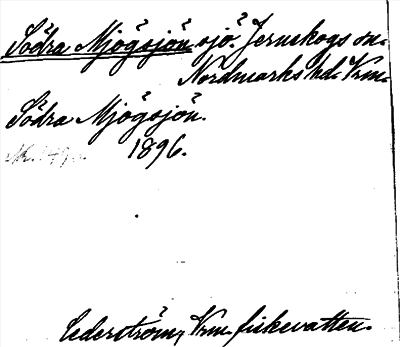 Södra Mjögsjön sjö. Jernskogs sn.
Nordmarks hd. Vrm.
Södra Mjögsjön.
1896.
Cederström, Vrm. fiskevatten.